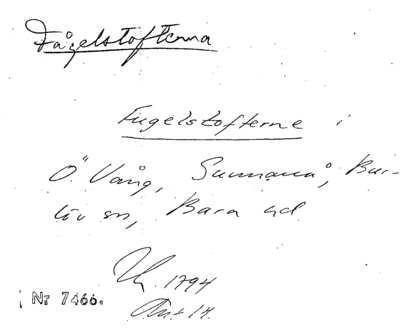 Fågelstofterna
Fugelstofterne i
Ö. Vång, Sunnanå, Bur-
löv sn, Bara hd.
1794
Nr 7466.